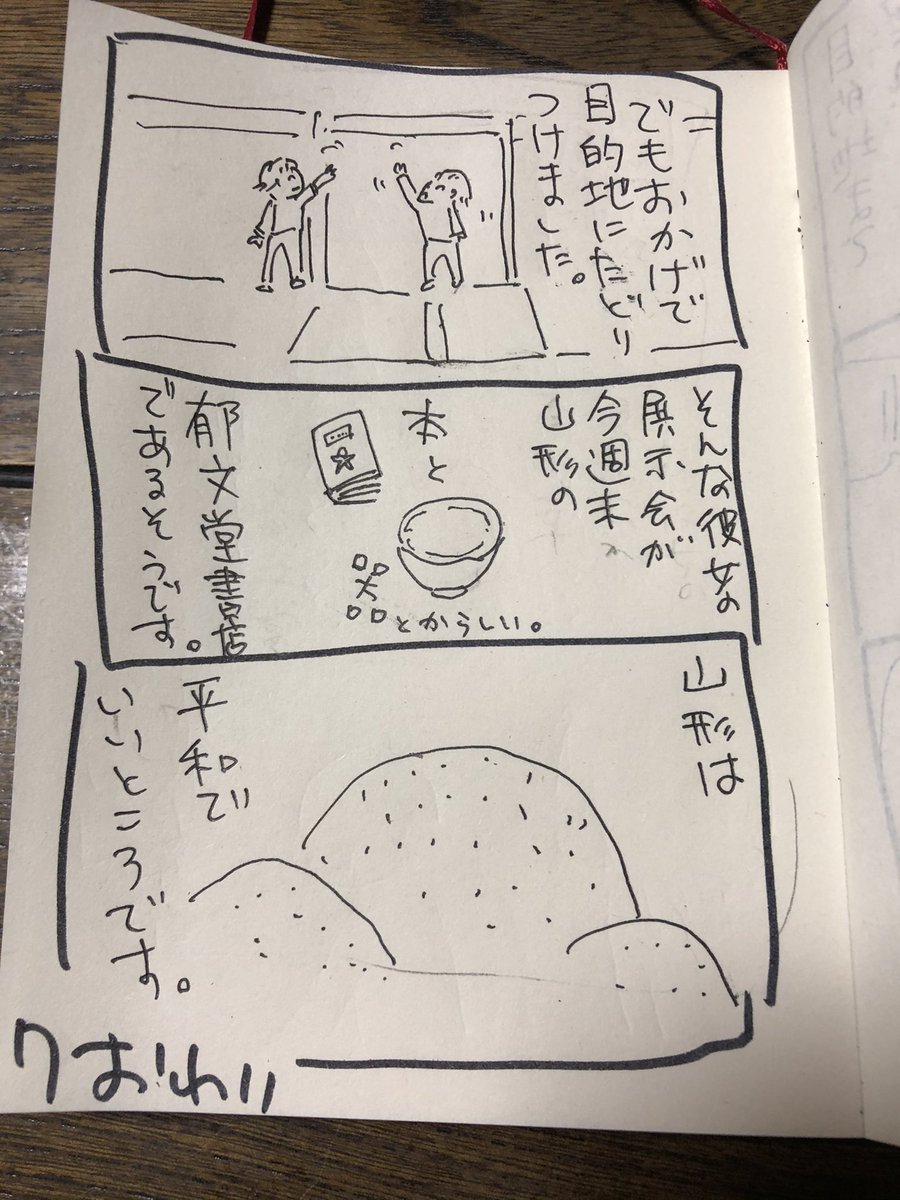 でもおかげで
目的地にたどり
つけました。
そんな彼女の
展示会が
今週末
山形の
本と
器
とからしい。
郁文堂書店
であるそうです。
山形は
平和で
いいところです。
7 おわり